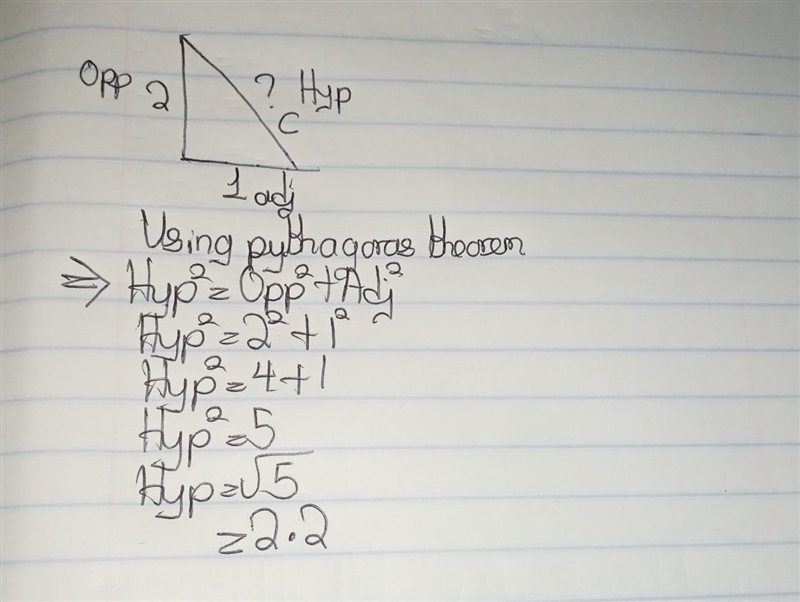 Opp 2 ? Hyp
C
1 adj
Using pythagoras theorem
⇒ Hyp² = Opp² + Adj²
Hyp² = 2² + 1²
Hyp² = 4 + 1
Hyp² = 5
Hyp = √5
= 2·2